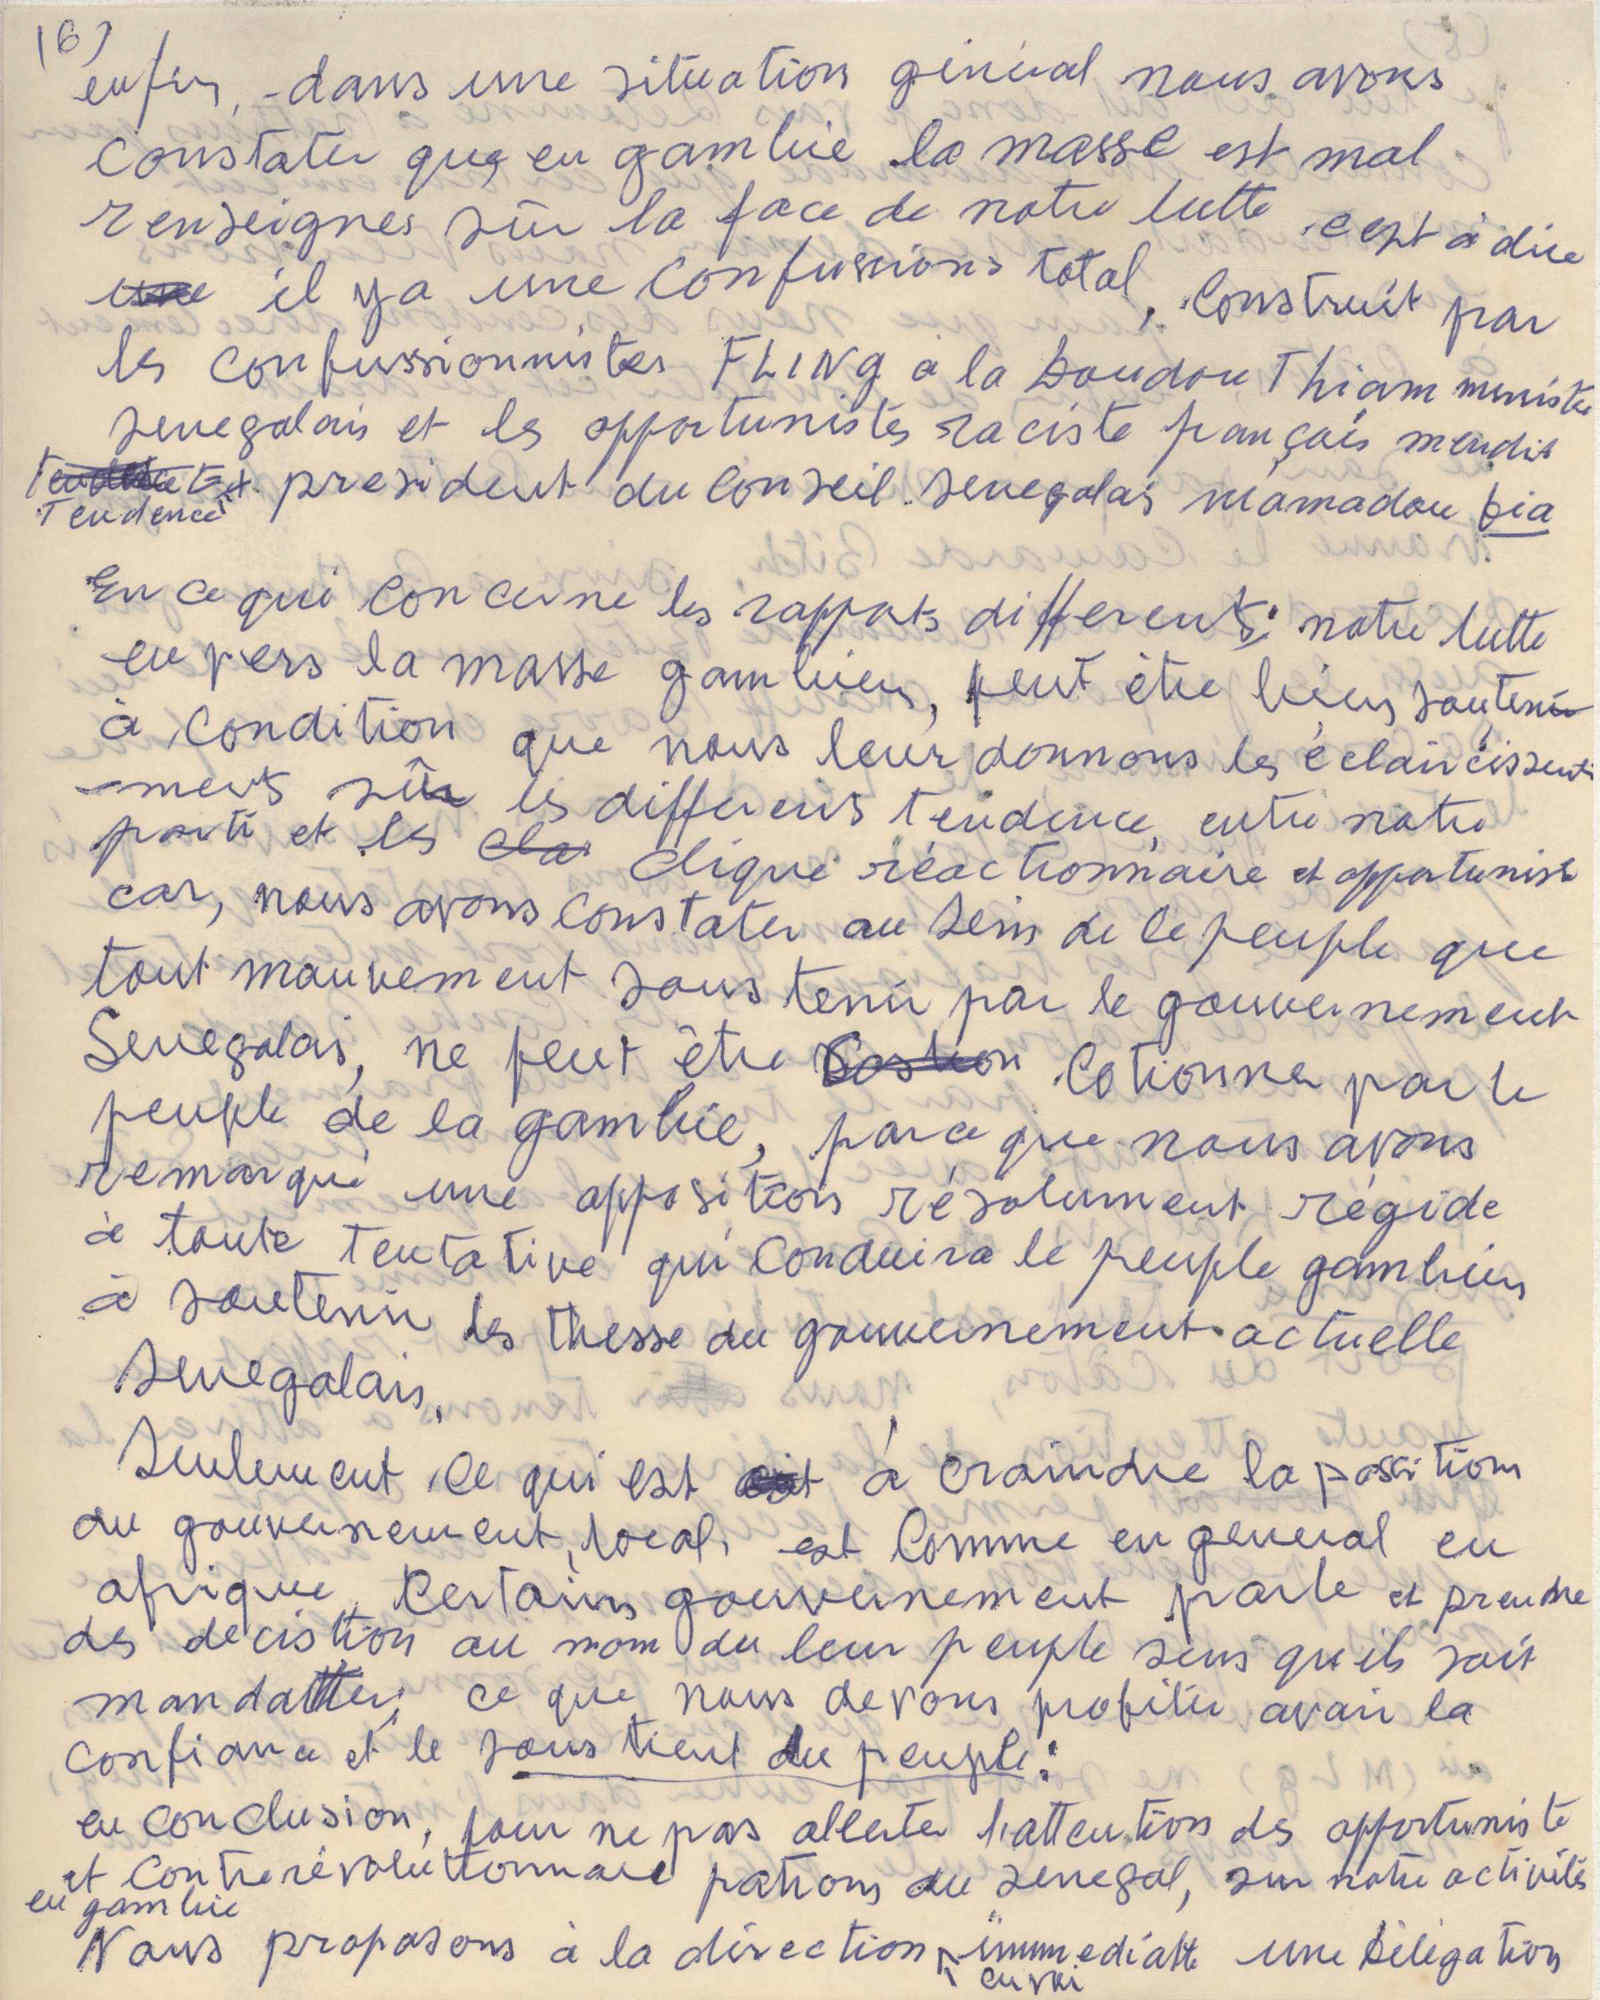 (6)
enfin, dans une situation géniéral nous avons
constater que, en gambie la masse est mal
renseignes sûr la face de notre lutte c'est à dire
une il ya une confussions total, construit par
les confussionnistes FLING à la Doudou Thiam ministre
senegalais et les opportunistes raciste français mendit
Tendence et president du conseil senegalais mamadou Dia
Tendence
En ce qui concerne les rapports differents: notre lutte
envers la masse gambien, peut être bien soutenir
à condition que nous leur donnons les éclaircissent
-ments sûr les differents tendence, entre notre
parti et les cla clique réactionnaire et opportunist
car, nous avons constater au sein de le peuple que
tout mauvement soustenir par le gouvernement
Senegalais, ne peut être Costion Cotionner par le
peuple de la gambie, parce que nous avons
remarqué une opposition résolument régide
à toute tentative qui conduira le peuple gambien
à soutenir les thesse du gouvernement actuelle
Senegalais.
Seulement ce qui est à craindre la possition
du gouvernement local, est comme en general en
afrique, Certains gouvernement parle et prendre
des decistion au nom du leur peuple sens qu'ils soit
mandatter, ce que nous devons profiter avoir la
confiance et le soustient du peuple:
en conclusion, pour ne pas allerter l'attention des opportuniste
et contrerévolutionnaire patrons du senegal, sur notre activités
en gambie
Nous proposons à la dèrection immediatte une Délégation
envoi